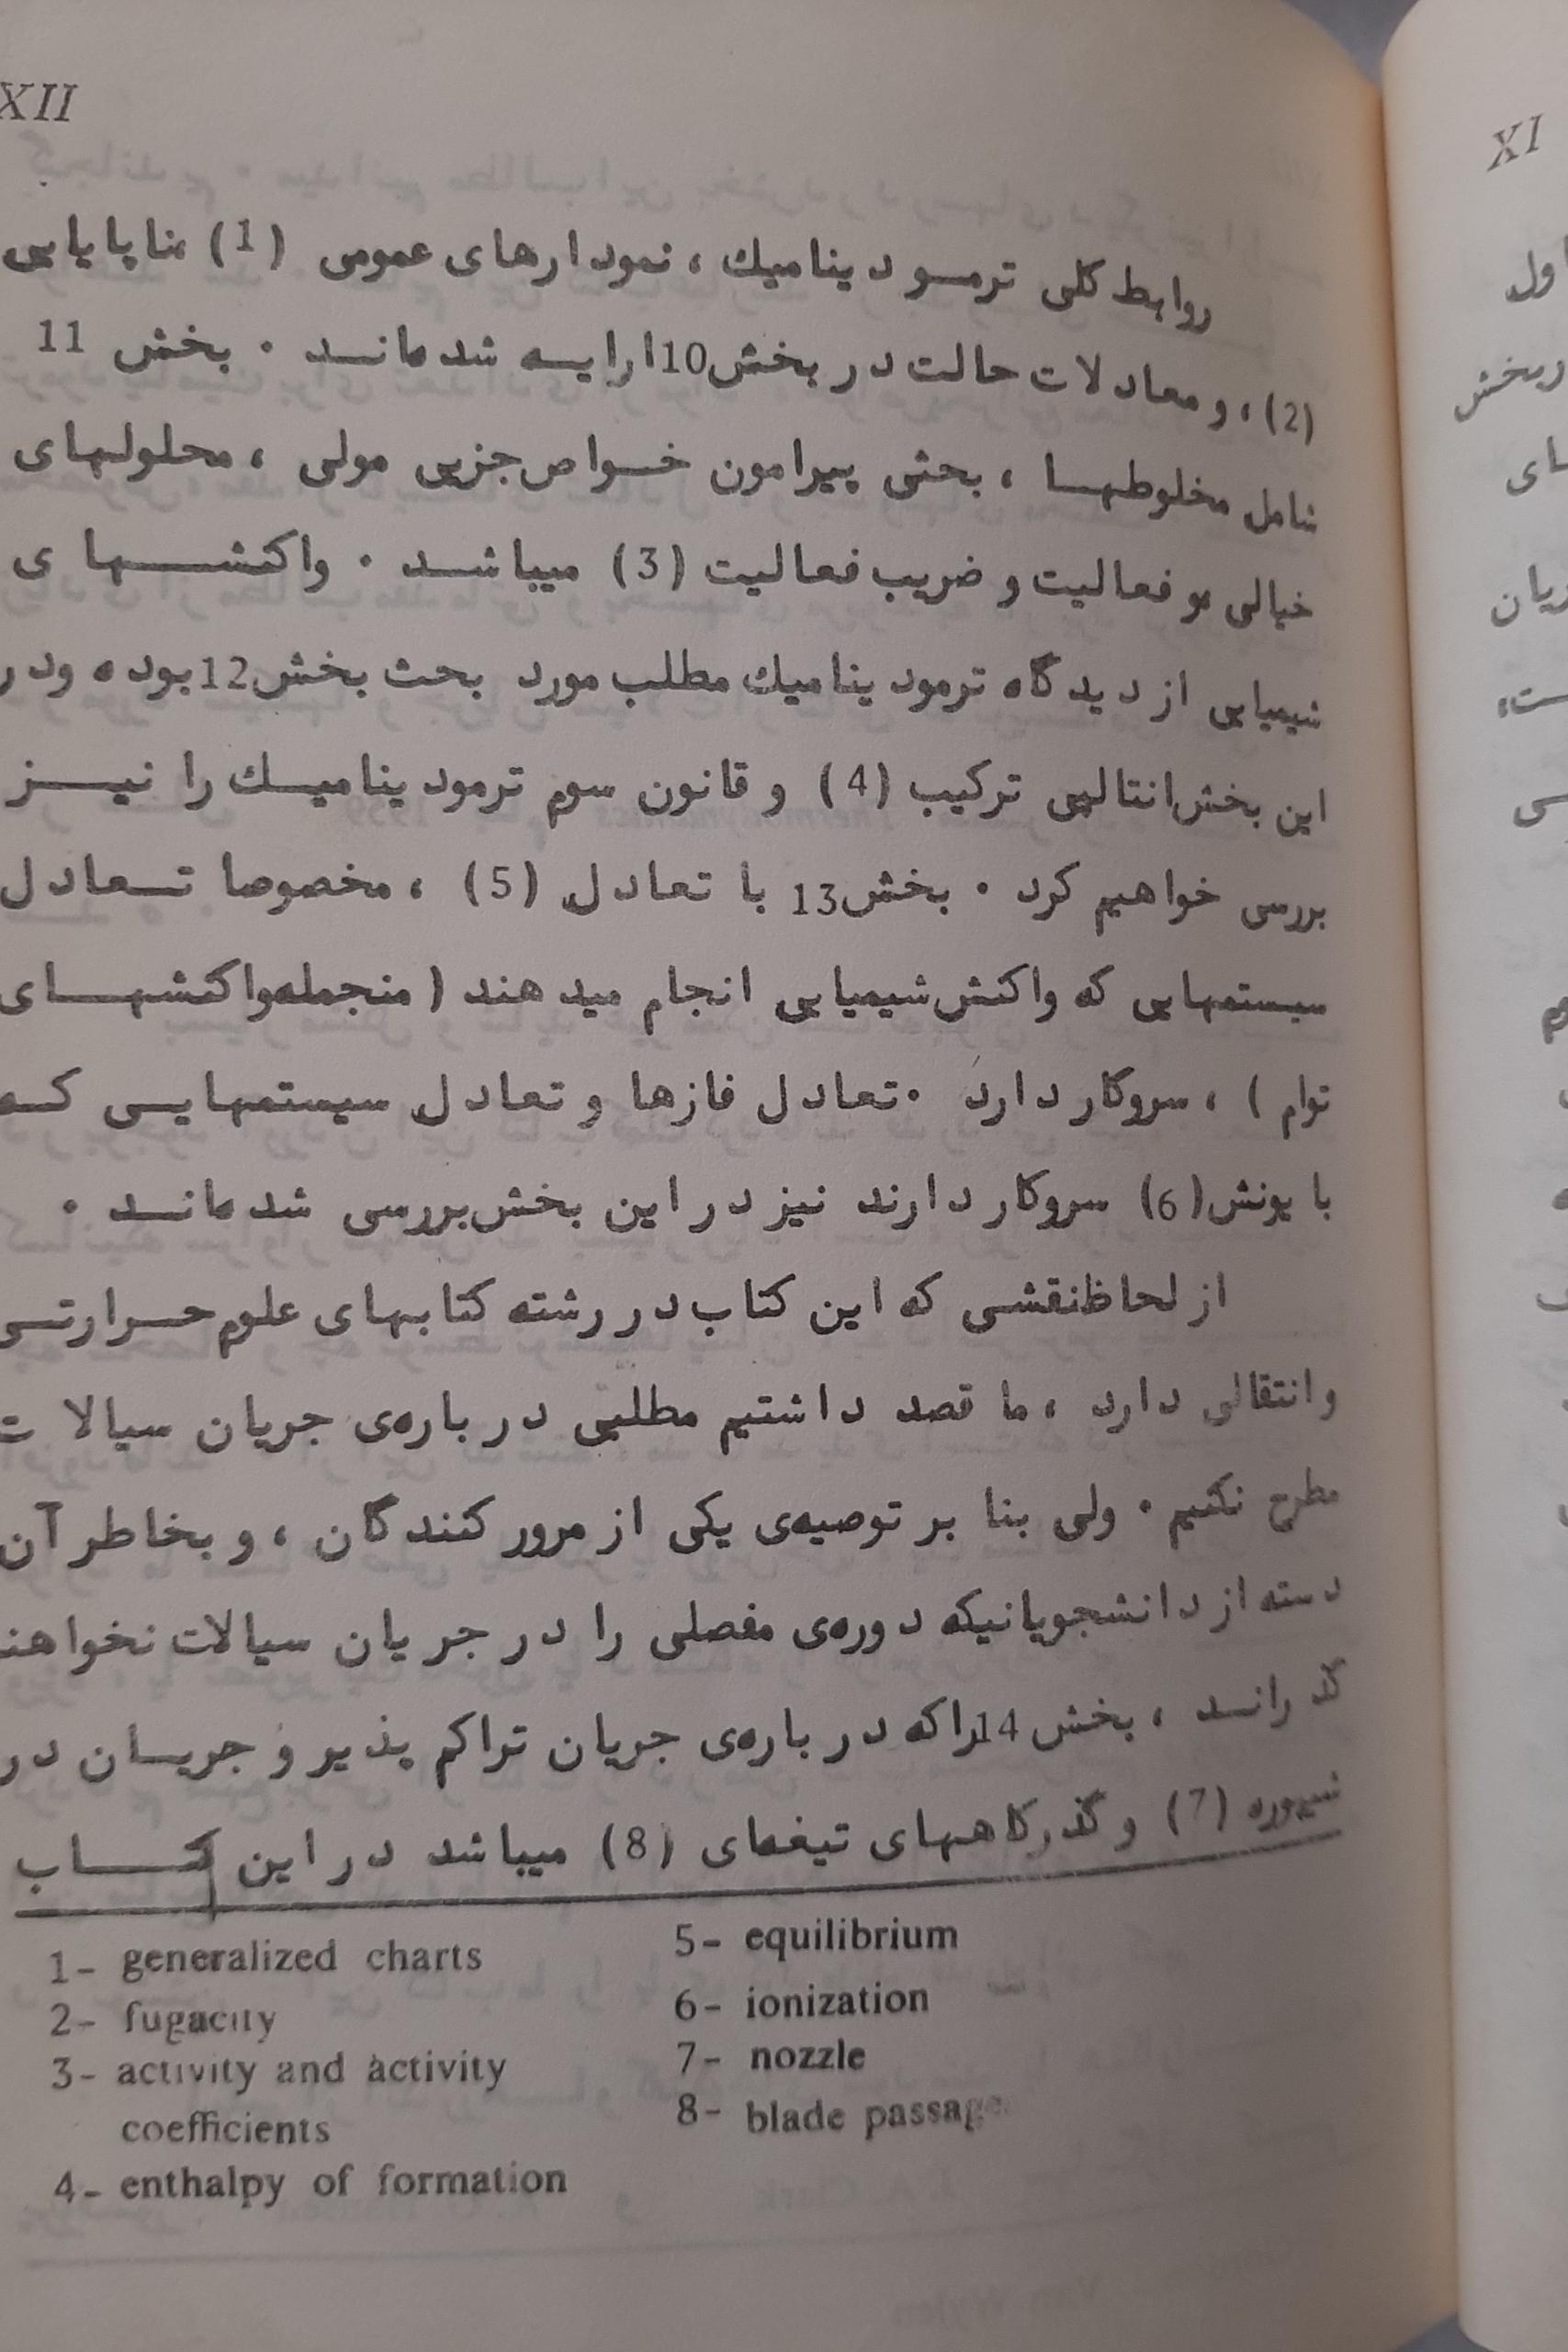 XII
روابط کلی ترمودینامیك ، نمودارهای عمومی (1) ناپایایی
(2) ، و معادلات حالت در بخش 10 ارایه شده‌اند . بخش 11
شامل مخلوطها ، بحثی پیرامون خواص جزیی مولی ، محلولهای
خیالی و فعالیت و ضریب فعالیت (3) میباشد . واکنشهای
شیمیایی از دیدگاه ترمودینامیك مطلب مورد بحث بخش 12 بوده ودر
این بخش انتالپی ترکیب (4) و قانون سوم ترمودینامیك را نیز
بررسی خواهیم کرد . بخش 13 با تعادل (5) ، مخصوصا تعادل
سیستمهایی که واکنش شیمیایی انجام میدهند ( منجمله واکنشهای
توام ) ، سروکار دارد . تعادل فازها و تعادل سیستمهایی که
با یونش (6) سروکار دارند نیز در این بخش بررسی شده‌اند .
از لحاظ نقشی که این کتاب در رشته کتابهای علوم حرارتی
و انتقالی دارد ، ما قصد داشتیم مطلبی درباره‌ی جریان سیالات
مطرح نکنیم . ولی بنا بر توصیه‌ی یکی از مرور کنندگان ، و بخاطر آن
دسته از دانشجویانیکه دوره‌ی مفصلی را در جریان سیالات نخواهند
گذراند ، بخش 14 راکه درباره‌ی جریان تراکم پذیر و جریان در
شیپوره (7) و گذرگاههای تیغه‌ای (8) میباشد در این کتاب
1- generalized charts
2- fugacity
3- activity and activity
coefficients
4- enthalpy of formation
5- equilibrium
6- ionization
7- nozzle
8- blade passage
XI
اول
دربخش
های